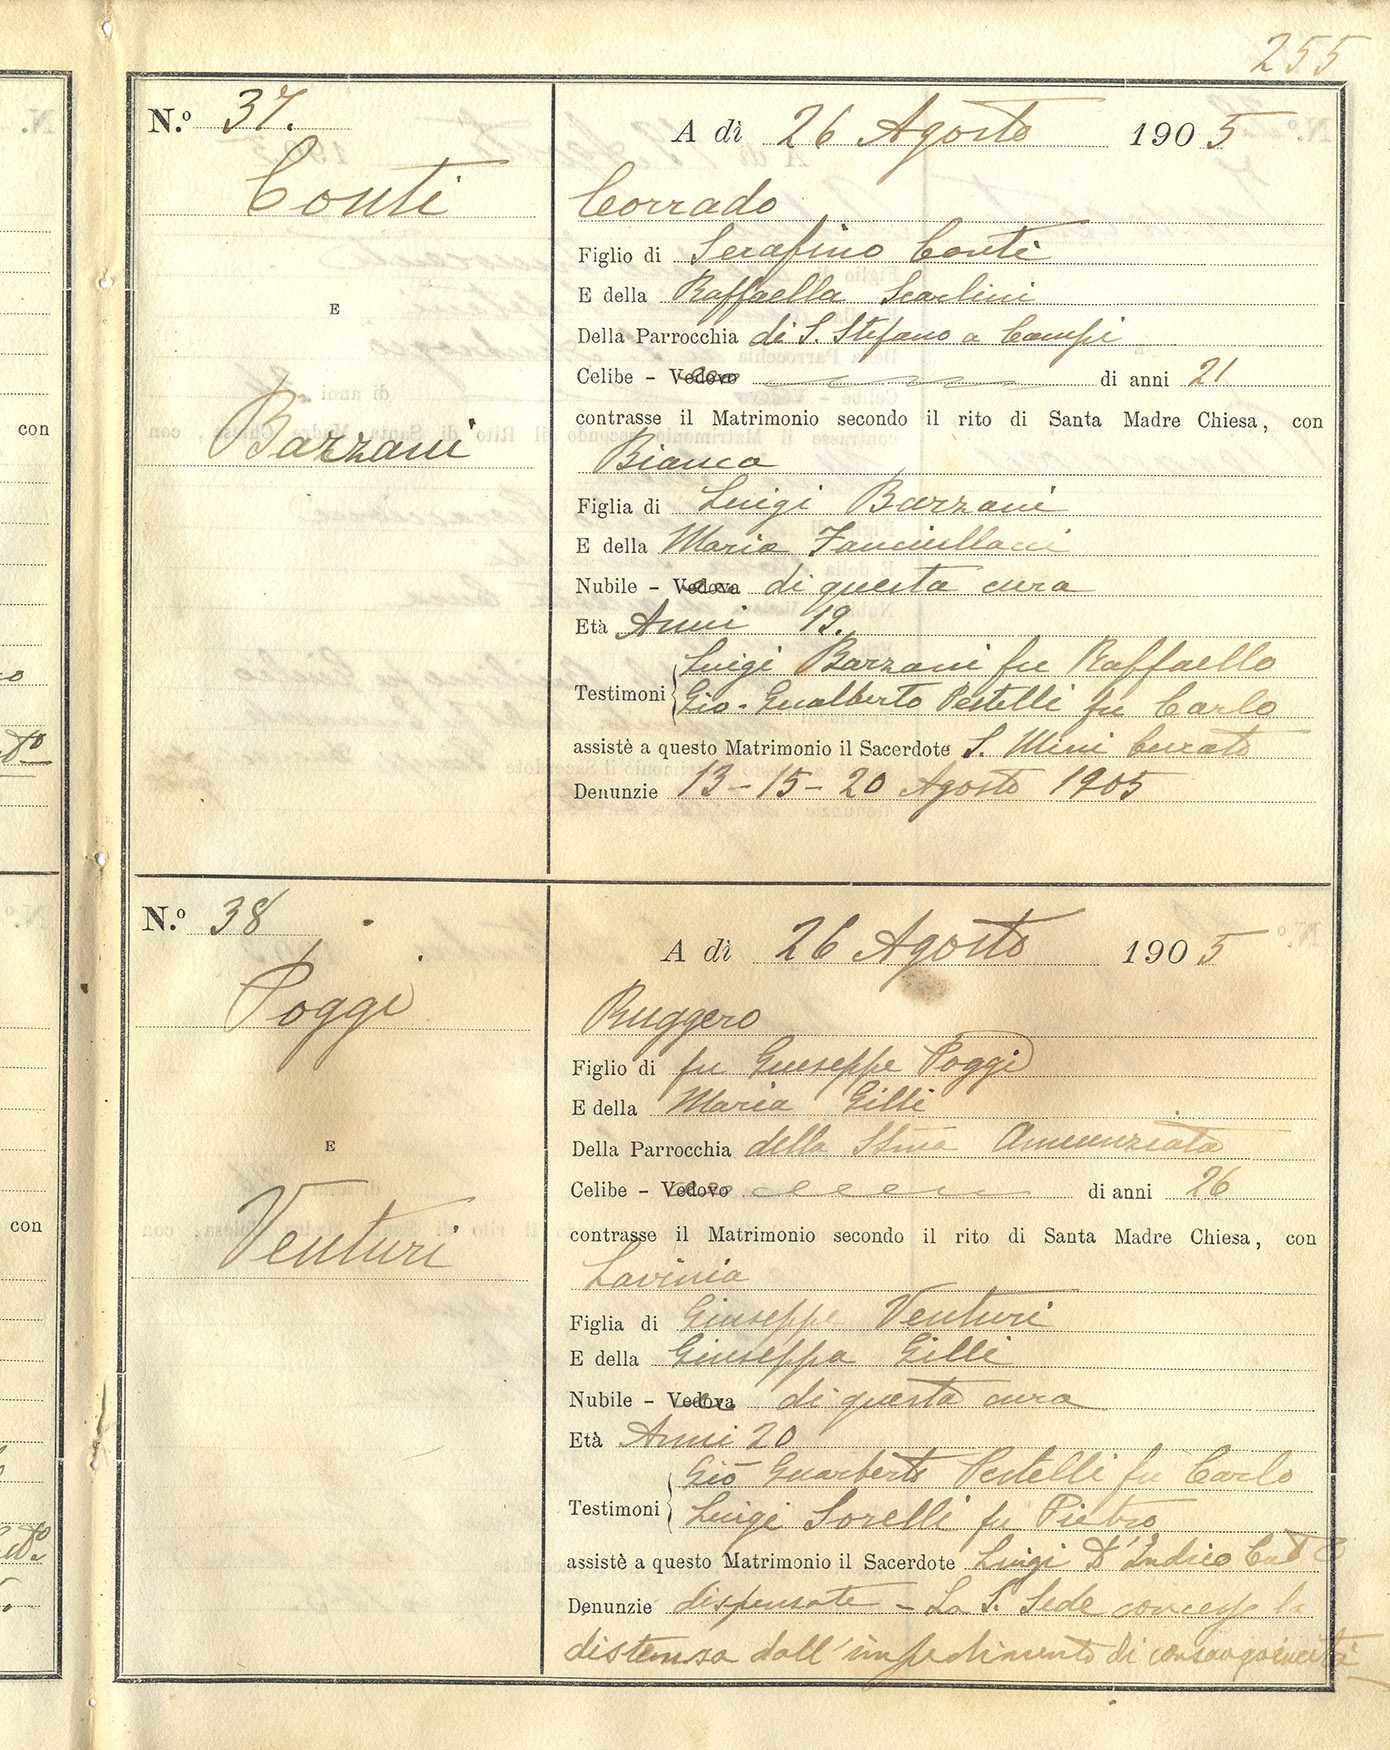 255
N.º 37.
Conti
E
Barzani
A dì 26 Agosto 1905
Corrado
Figlio di Serafino Conti
E della Raffaella Scarlini
Della Parrocchia di S. Stefano a Campi
Celibe - Vedovo di anni 21
contrasse il Matrimonio secondo il rito di Santa Madre Chiesa, con
Bianca
Figlia di Luigi Barzani
E della Maria Fanciullacci
Nubile - Vedova di questa cura
Età Anni 19.
Luigi Barzani fu Raffaello
Testimoni
Gio. Gualberto Pestelli fu Carlo
assistè a questo Matrimonio il Sacerdote S. Mini Curato
Denunzie 13 - 15 - 20 Agosto 1905
N.º 38
Poggi
E
Venturi
A dì 26 Agosto 1905
Ruggero
Figlio di fu Giuseppe Poggi
E della Maria Gilli
Della Parrocchia della SSma Annunziata
Celibe - Vedovo di anni 26
contrasse il Matrimonio secondo il rito di Santa Madre Chiesa, con
Lavinia
Figlia di Giuseppe Venturi
E della Giuseppa Gilli
Nubile - Vedova di questa cura
Età Anni 20
Gio Guarberto Pestelli fu Carlo
Testimoni
Luigi Sorelli fu Pietro
assistè a questo Matrimonio il Sacerdote Luigi D'Indico
Denunzie dispensate - La S. Sede concesse la
distensa dall'impedimento di consanguineità
con
con